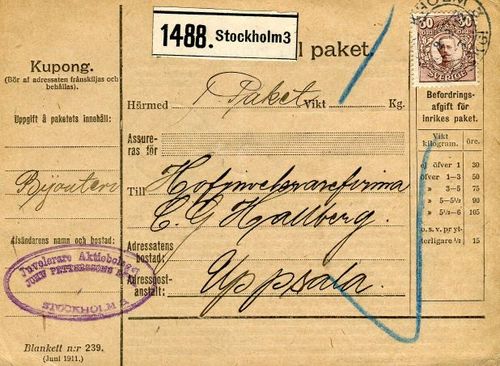 1488. Stockholm 3
l paket.
Kupong.
(Bör af adressaten frånskiljas och behållas).
Uppgift å paketets innehåll:
Bijouteri
Afsändarens namn och bostad:
Juvelerare Aktiebolaget
JOHN PETTERSSONS
STOCKHOLM
Blankett n:r 239.
(Juni 1911.)
Härmed 1 Paket Vikt 1 Kg.
Assure-
ras för
Till Hofjuvelerarefirma
C G Hallberg.
Adressatens
bostad:
Adresspost-
anstalt: Uppsala.
30 30
SVERIGE
Befordrings-
afgift för
inrikes paket.
Vikt kilogram. öre.
öfver 1 30
öfver 1—3 50
» 3—5 75
» 5—5½ 90
» 5½—6 105
o. s. v. pr yt-
terligare ½ 15